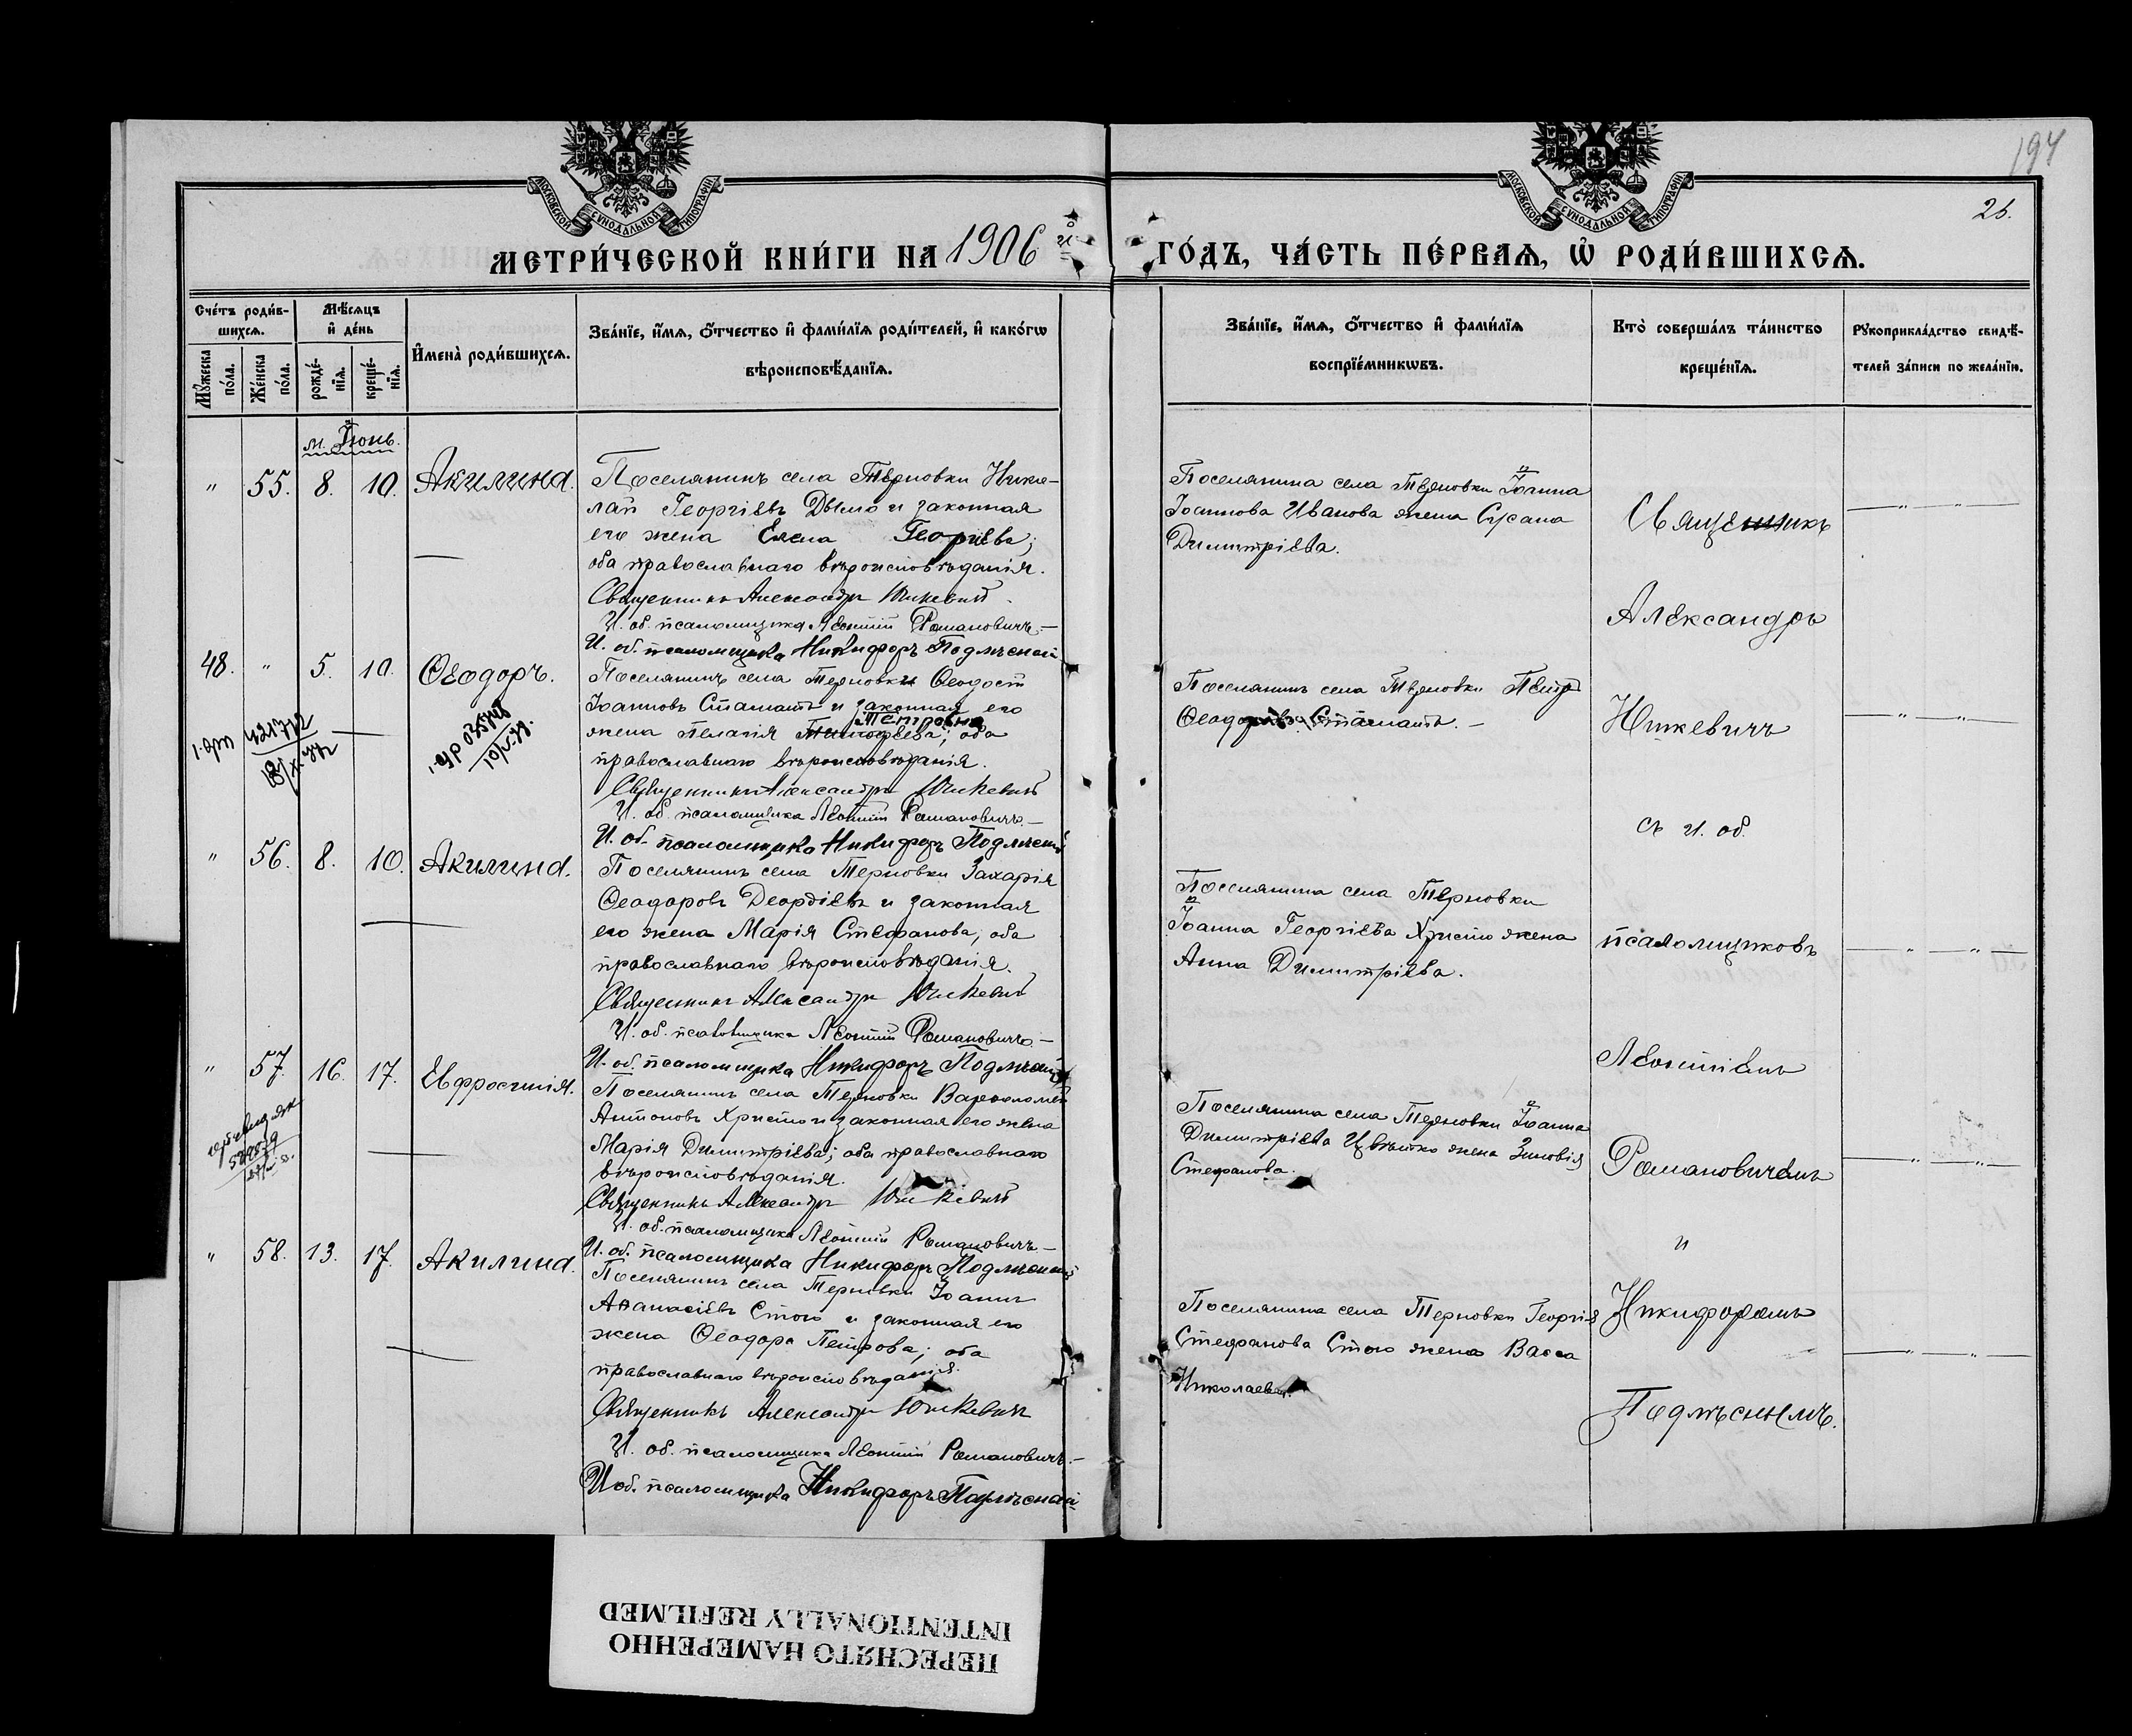 194
26.
МОСКОВСКОЙ СѴНОДАЛЬНОЙ ТИПОГРАФІИ
МОСКОВСКОЙ СѴНОДАЛЬНОЙ ТИПОГРАФІИ
МЕТРИ́ЧЕСКОЙ КНИ́ГИ НА 1906 й
ГО́ДЪ, ЧА́СТЬ ПЕ́РВАѦ, Ѡ҆ РОДИ́ВШИХСѦ.
Сче́тъ роди́в-
шихсѧ.
Мꙋ́жеска по́ла.
Же́нска по́ла.
Мѣ́сѧцъ
и҆ де́нь
рожде́-
нїѧ.
креще́-
нїѧ.
И҆мена̀ роди́вшихсѧ.
Зва́нїе, и҆́мѧ, ѻ҆́тчество и҆ фами́лїѧ роди́телей, и҆ како́гѡ
вѣроисповѣ́данїѧ.
Зва́нїе, и҆́мѧ, ѻ҆́тчество и҆ фами́лїѧ
воспрїе́мникѡвъ.
Кто̀ соверша́лъ та́инство
креще́нїѧ.
Рꙋкоприкла́дство свидѣ́-
телей за́писи по жела́нїю.
м. Іюнь.
" 55. 8. 10. Акилина.
Поселянинъ села Терновки Нико-
лай Георгіевъ Дымо и законная
его жена Елена Георгіева;
оба православнаго вѣроисповѣданія.
Священникъ Александръ Юшкевичъ
И. об. псаломщика Леонтій Романовичъ.—
И. об. псаломщика Никифоръ Подлѣсный
Поселянина села Терновки Іоанна
Іоаннова Иванова жена Сусана
Димитріева.
48. " 5. 10. Ѳеодоръ.
Поселянинъ села Терновки Ѳеодот
Іоанновъ Стаматъ и законная его
Петровна
жена Пелагія Тимофеева; оба
православнаго вѣроисповѣданія.
Священникъ Александръ Юшкевичъ
И. об. псаломщика Леонтій Романовичъ.—
И. об. псаломщика Никифоръ Подлѣсный
Поселянинъ села Терновки Петръ
Ѳеодоровъ Стаматъ.—
" 56. 8. 10. Акилина.
Поселянинъ села Терновки Захарія
Ѳеодоровъ Деордіевъ и законная
его жена Марія Стефанова; оба
православнаго вѣроисповѣданія.
Священникъ Александръ Юшкевичъ
И. об. псаломщика Леонтій Романовичъ.—
И. об. псаломщика Никифоръ Подлѣсный
Поселянина села Терновки
Іоанна Георгіева Христо жена
Анна Димитріева.
" 57. 16. 17. Евфросинія.
Поселянинъ села Терновки Варѳоломей
Антоновъ Христо и законная его жена
Марія Димитріева; оба православнаго
вѣроисповѣданія.
Священникъ Александръ Юшкевичъ
И. об. псаломщика Леонтій Романовичъ.—
И. об. псаломщика Никифоръ Подлѣсный
Поселянина села Терновки Іоанна
Димитріева Цвѣтко жена Зиновія
Стефанова.
" 58. 13. 17. Акилина.
Поселянинъ села Терновки Іоаннъ
Аѳанасіевъ Стого и законная его
жена Ѳеодора Петрова; оба
православнаго вѣроисповѣданія.
Священникъ Александръ Юшкевичъ
И. об. псаломщика Леонтій Романовичъ.—
И об. псаломщика Никифоръ Подлѣсный
Поселянина села Терновки Георгія
Стефанова Стого жена Васса
Николаева.
Священникъ
Александръ
Юшкевичъ
съ и. об.
псаломщиковъ
Леонтіемъ
Романовичемъ
и
Никифоромъ
Подлѣснымъ.
ПЕРЕСНЯТО НАМЕРЕННО
INTENTIONALLY REFILMED